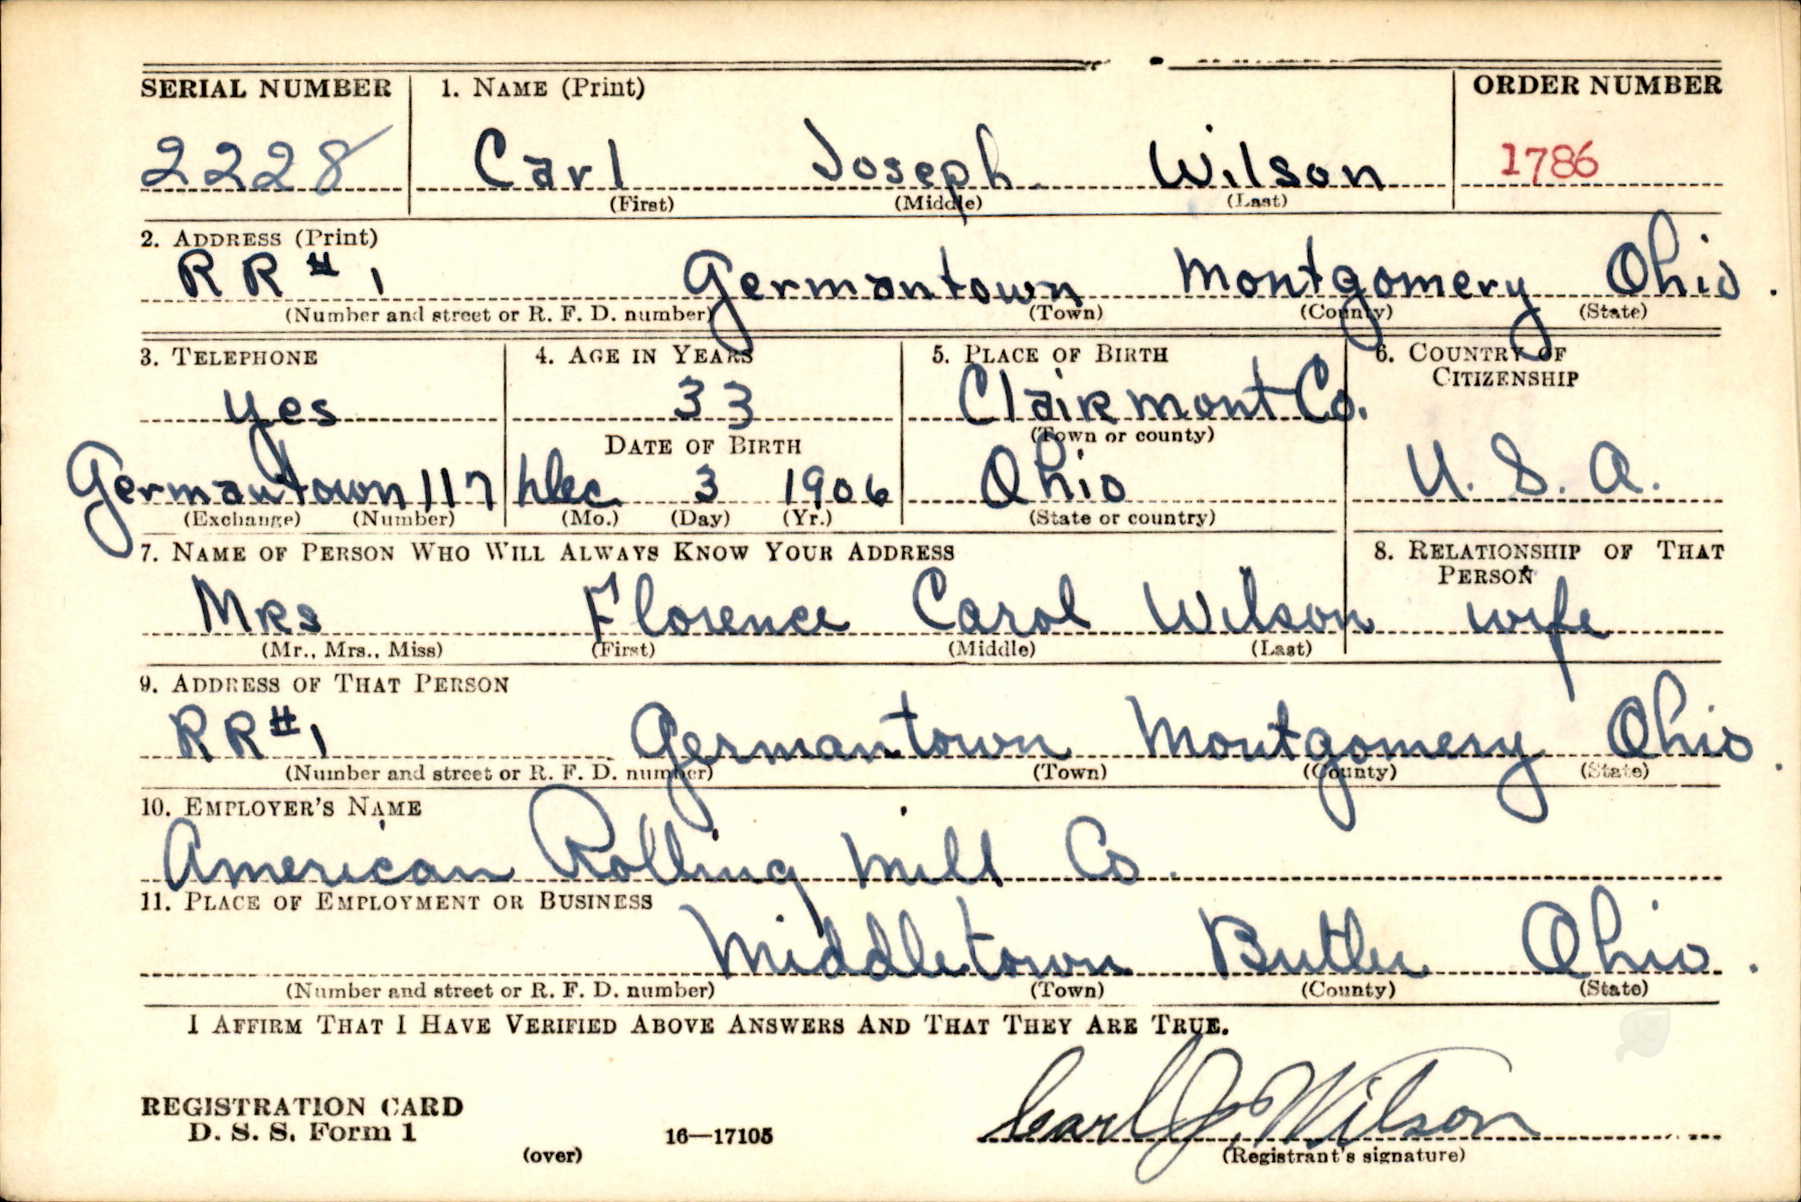 SERIAL NUMBER 1. NAME (Print) ORDER NUMBER
2228 Carl Joseph Wilson 1786
(First) (Middle) (Last)
2. ADDRESS (Print)
RR#1 Germantown Montgomery Ohio.
(Number and street or R. F. D. number) (Town) (County) (State)
3. TELEPHONE 4. AGE IN YEARS 5. PLACE OF BIRTH 6. COUNTRY OF
CITIZENSHIP
yes 33 Clairmont Co.
DATE OF BIRTH (Town or county)
Germantown 117 Dec 3 1906 Ohio U. S. A.
(Exchange) (Number) (Mo.) (Day) (Yr.) (State or country)
7. NAME OF PERSON WHO WILL ALWAYS KNOW YOUR ADDRESS 8. RELATIONSHIP OF THAT
PERSON
Mrs Florence Carol Wilson wife
(Mr., Mrs., Miss) (First) (Middle) (Last)
9. ADDRESS OF THAT PERSON
RR#1 Germantown Montgomery Ohio.
(Number and street or R. F. D. number) (Town) (County) (State)
10. EMPLOYER'S NAME
American Rolling Mill Co.
11. PLACE OF EMPLOYMENT OR BUSINESS
Middletown Butler Ohio.
(Number and street or R. F. D. number) (Town) (County) (State)
I AFFIRM THAT I HAVE VERIFIED ABOVE ANSWERS AND THAT THEY ARE TRUE.
REGISTRATION CARD
D. S. S. Form 1 16—17105 Carl J. Wilson
(over) (Registrant's signature)